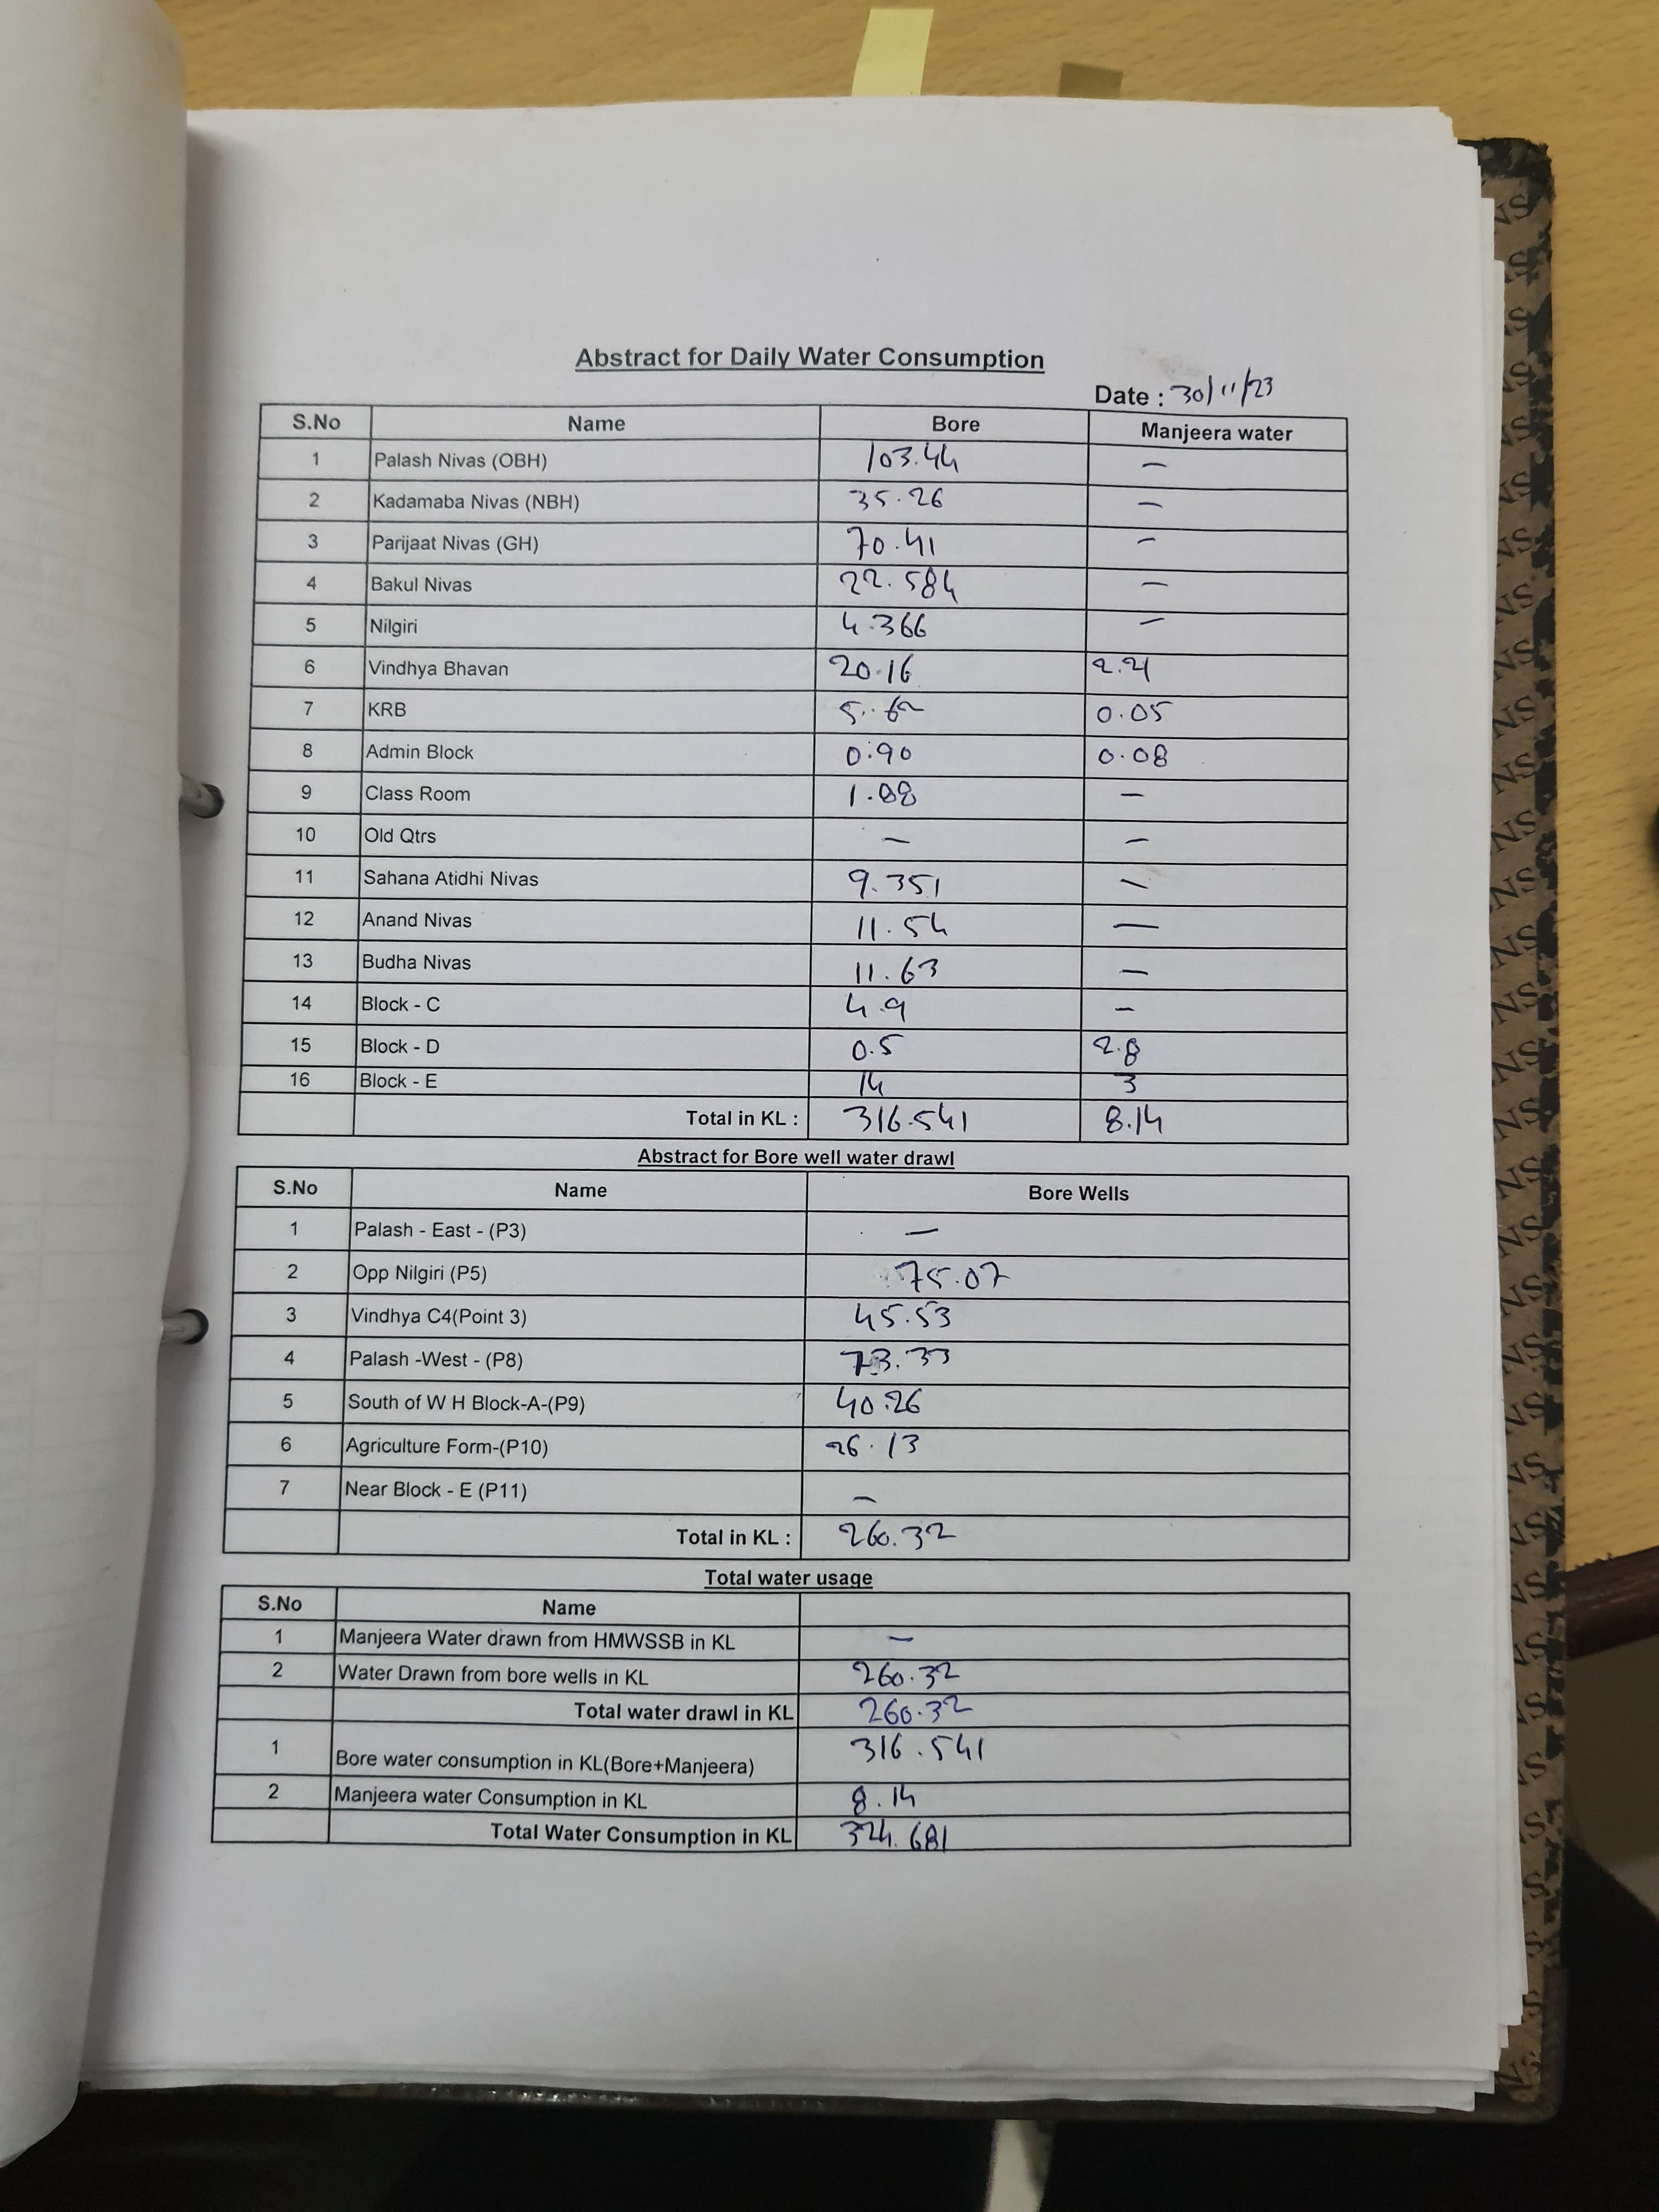 Abstract for Daily Water Consumption
Date : 30/11/23
S.No Name Bore Manjeera water
1 Palash Nivas (OBH) 103.44 —
2 Kadamaba Nivas (NBH) 35.26 —
3 Parijaat Nivas (GH) 70.41 —
4 Bakul Nivas 22.584 —
5 Nilgiri 4.366 —
6 Vindhya Bhavan 20.16 2.21
7 KRB 5.62 0.05
8 Admin Block 0.90 0.08
9 Class Room 1.88 —
10 Old Qtrs — —
11 Sahana Atidhi Nivas 9.351 —
12 Anand Nivas 11.54 —
13 Budha Nivas 11.63 —
14 Block - C 4.9 —
15 Block - D 0.5 2.8
16 Block - E 14 3
Total in KL : 316.541 8.14
Abstract for Bore well water drawl
S.No Name Bore Wells
1 Palash - East - (P3) —
2 Opp Nilgiri (P5) 75.07
3 Vindhya C4(Point 3) 45.53
4 Palash -West - (P8) 73.33
5 South of W H Block-A-(P9) 40.26
6 Agriculture Form-(P10) 26.13
7 Near Block - E (P11) —
Total in KL : 260.32
Total water usage
S.No Name
1 Manjeera Water drawn from HMWSSB in KL —
2 Water Drawn from bore wells in KL 260.32
Total water drawl in KL 260.32
1 Bore water consumption in KL(Bore+Manjeera) 316.541
2 Manjeera water Consumption in KL 8.14
Total Water Consumption in KL 324.681